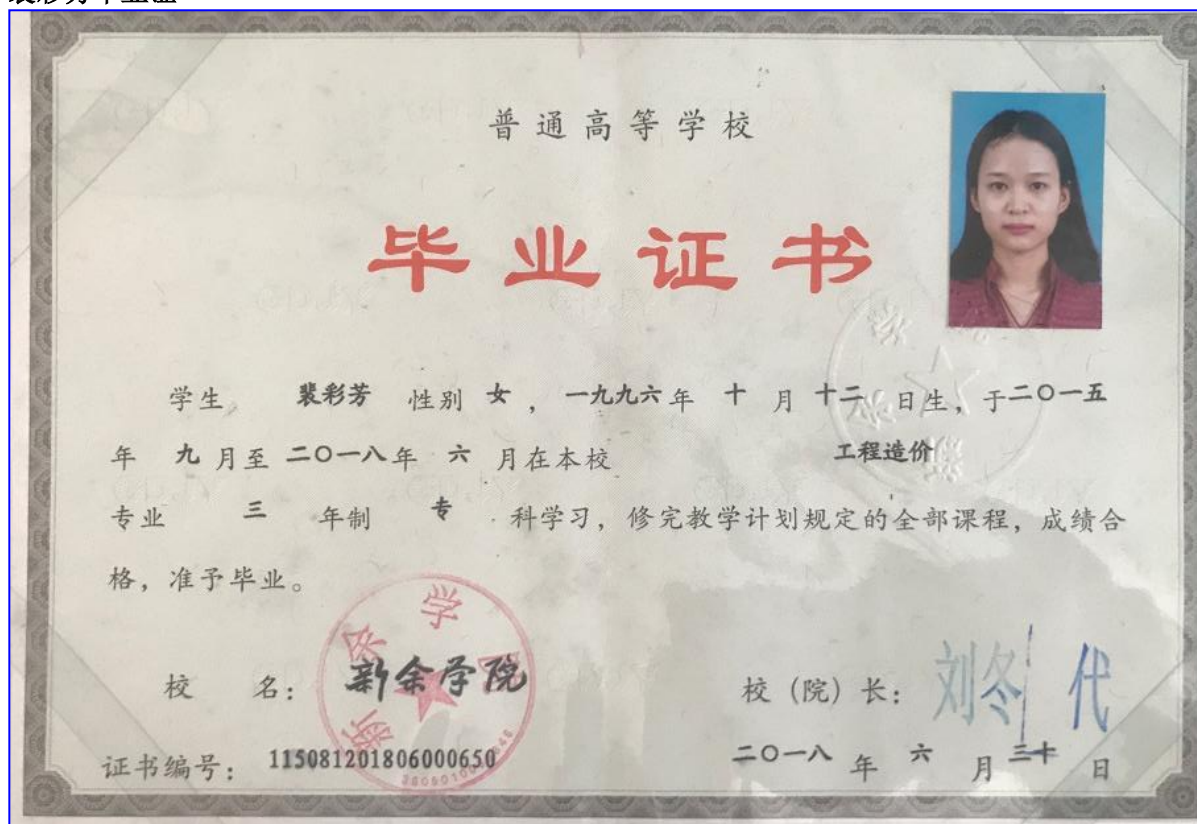 普通高等学校
毕业证书
学生 裴彩芳 性别 女 , 一九九六 年 十 月 十二 日生, 于二〇一五
年 九 月至 二〇一八 年 六 月在本校 工程造价
专业 三 年制 专 科学习, 修完教学计划规定的全部课程, 成绩合
格, 准予毕业。
校 名: 新余学院
校 (院) 长: 刘冬 代
证书编号: 115081201806000650
二〇一八 年 六 月 三十 日